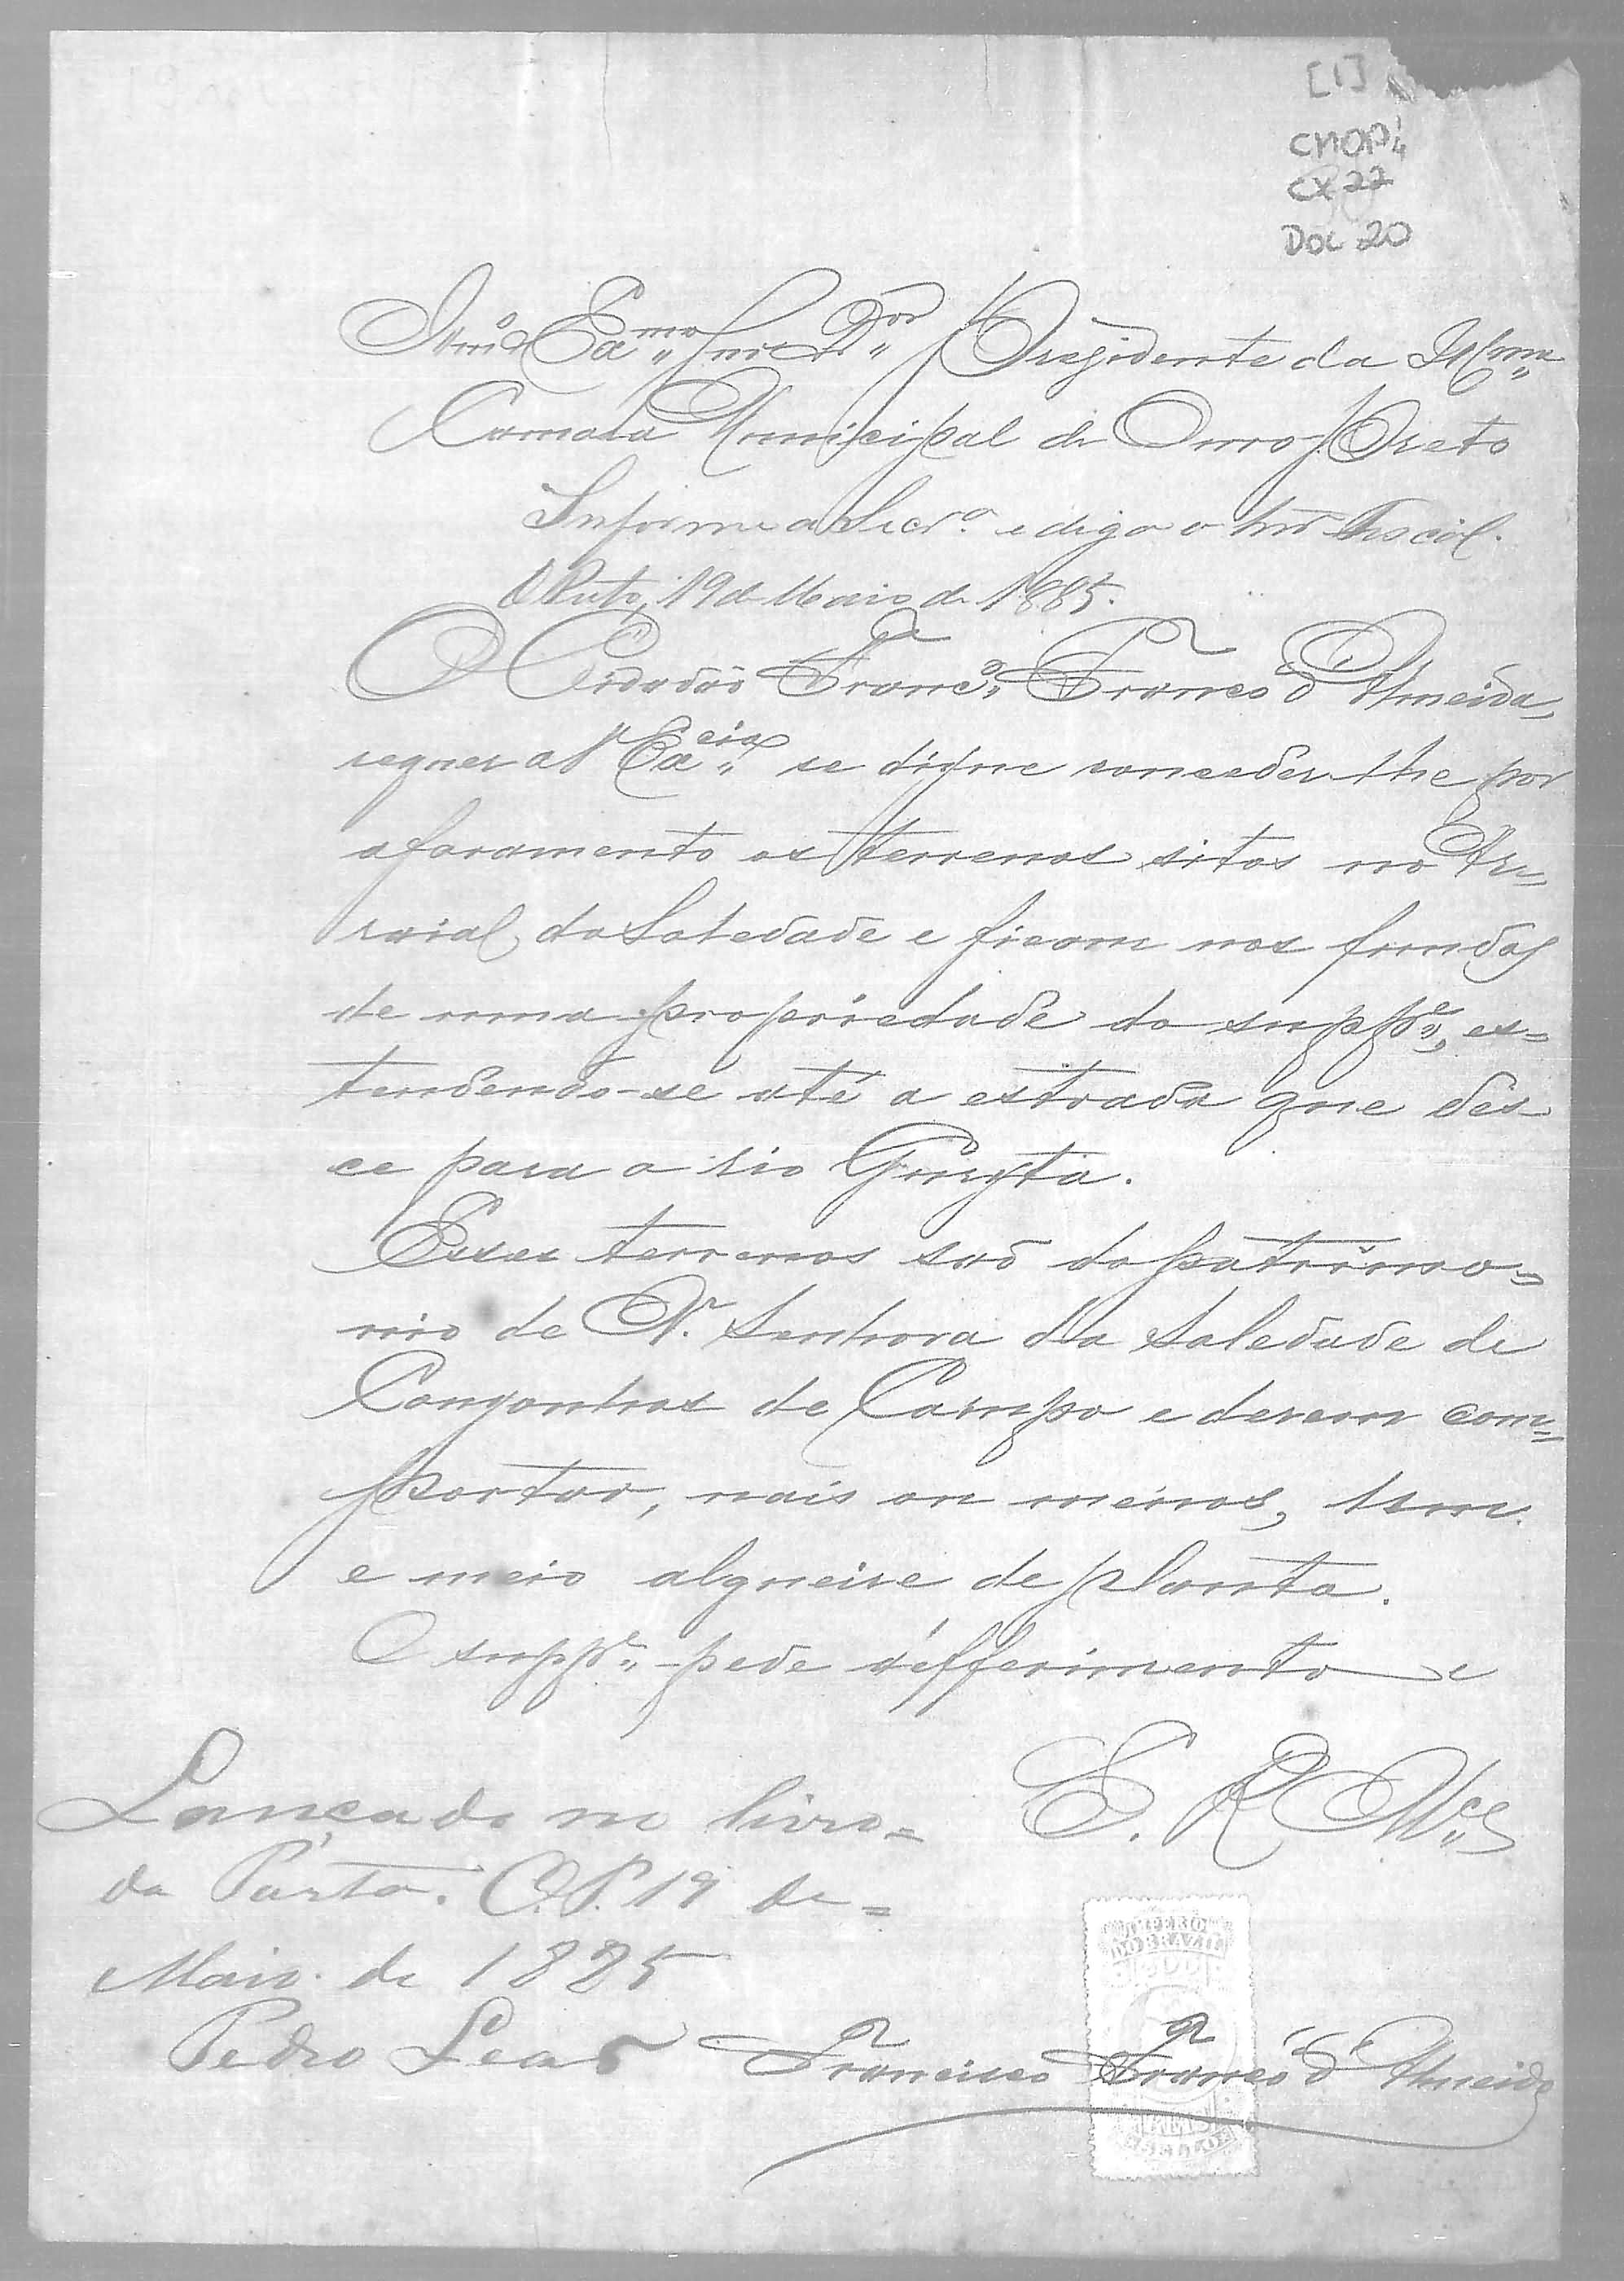 [1]
CMOP
CX 22
DOC 20
Illmo Exmo Snr Dor Presidente da Illma
Camara Municipal de Ouro Preto
Informe a Secr.ª e diga o Snr Fiscal.
O Preto, 19 de Maio de 1885.
O Cidadão Franc.º Franco d'Almeida,
requer a V Excia se digne conceder-lhe por
aforamento os terrenos sitos no Ar-
raial da Soledade e ficam nos fundos
de uma propriedade do supp.e, es=
tendendo-se até a estrada que des-
ce para o rio
Esses terrenos são do patrimo=
nio de N.ª Senhora da Soledade de
Congonhas de Campo e devem com=
portar, mais ou menos, um
e meio alqueire de planta.
O supp.e pede défferimento e
E. R. Mce
Lançado no livro=
da Porta. O.P. 19 de=
Maio de 1885
Pedro Leão
IMPERIO
DO BRAZIL
200
REIS
Francisco Franco d'Almeida